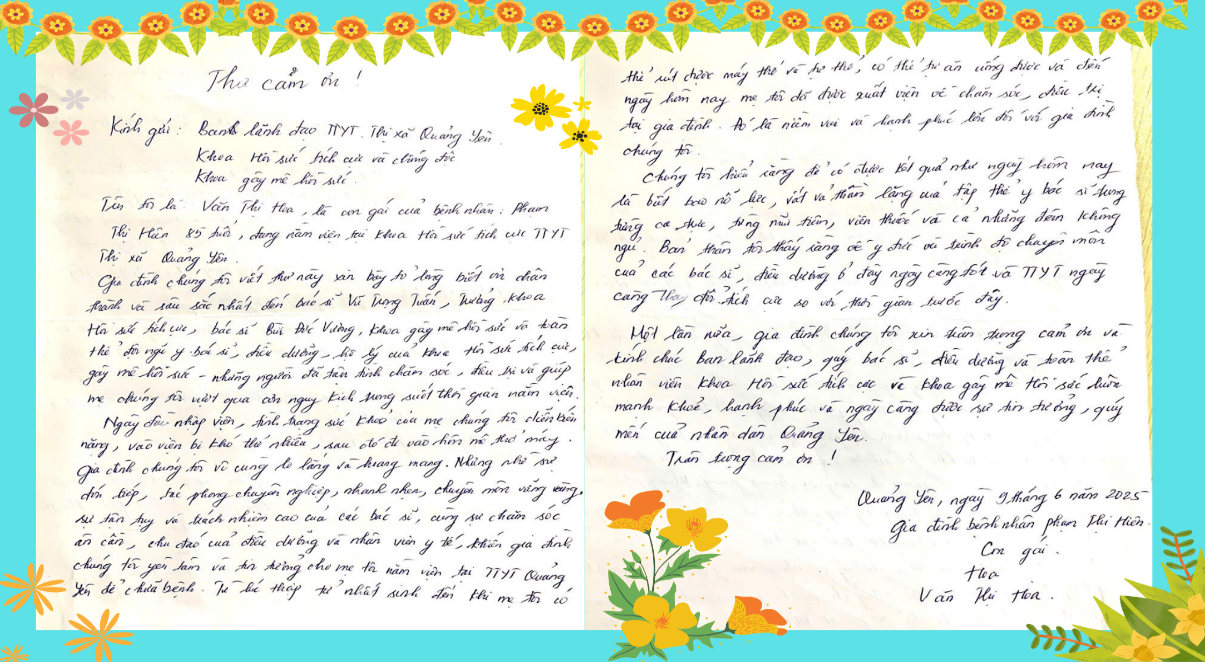 Thư cảm ơn !
Kính gửi : Banh lãnh đạo TTYT. Thị xã Quảng Yên.
Khoa Hồi sức tích cực và chống độc
Khoa gây mê hồi sức.
Tên tôi là : Văn Thị Hoa, là con gái của bệnh nhân : Phạm
Thị Hiên 85 tuổi, đang nằm viện tại khoa Hồi sức tích cực TTYT
Thị xã Quảng Yên.
Gia đình chúng tôi viết thư này xin bày tỏ lòng biết ơn chân
thành và sâu sắc nhất đến bác sĩ Vũ Trung Tuấn, Trưởng khoa
Hồi sức tích cực, bác sĩ Bùi Đức Vương, khoa gây mê hồi sức và toàn
thể đội ngũ y bác sĩ, điều dưỡng, hộ lý của khoa Hồi sức tích cực,
gây mê hồi sức - những người đã tận tình chăm sóc, điều trị và giúp
mẹ chúng tôi vượt qua cơn nguy kịch trong suốt thời gian nằm viện.
Ngày đầu nhập viện, tình trạng sức khoẻ của mẹ chúng tôi diễn biến
nặng, vào viện bị khó thở nhiều, sau đó đi vào hôn mê thở máy.
Gia đình chúng tôi vô cùng lo lắng và hoang mang. Nhưng nhờ sự
đón tiếp, tác phong chuyên nghiệp, nhanh nhẹn, chuyên môn vững vàng,
sự tận tuỵ và trách nhiệm cao của các bác sĩ, cùng sự chăm sóc
ân cần, chu đáo của điều dưỡng và nhân viên y tế, khiến gia đình
chúng tôi yên tâm và tin tưởng cho mẹ tôi nằm viện tại TTYT Quảng
Yên để chữa bệnh. Từ lúc thấp tử nhất sinh đến khi mẹ tôi có
thể rút được máy thở và tự thở, có thể tự ăn uống được và đến
ngày hôm nay mẹ tôi đã được xuất viện về chăm sóc, điều trị
tại gia đình. Đó là niềm vui và hạnh phúc lớn đối với gia đình
chúng tôi.
Chúng tôi hiểu rằng để có được kết quả như ngày hôm nay
là biết bao nỗ lực, vất vả thầm lặng của tập thể y bác sĩ trong
từng ca trực, từng mũi tiêm, viên thuốc và cả những đêm không
ngủ. Bản thân tôi thấy rằng về y đức và trình độ chuyên môn
của các bác sĩ, điều dưỡng ở đây ngày càng tốt và TTYT ngày
càng Thay đổi tích cực so với thời gian trước đây.
Một lần nữa, gia đình chúng tôi xin trân trọng cảm ơn và
kính chúc Ban lãnh đạo, quý bác sĩ, điều dưỡng và toàn thể
nhân viên khoa Hồi sức tích cực và khoa gây mê Hồi sức luôn
mạnh khoẻ, hạnh phúc và ngày càng được sự tin tưởng, quý
mến của nhân dân Quảng Yên.
Trân trọng cảm ơn !
Quảng Yên, ngày 9 tháng 6 năm 2025
Gia đình bệnh nhân phạm Thị Hiên.
Con gái.
Hoa
Văn Thị Hoa.